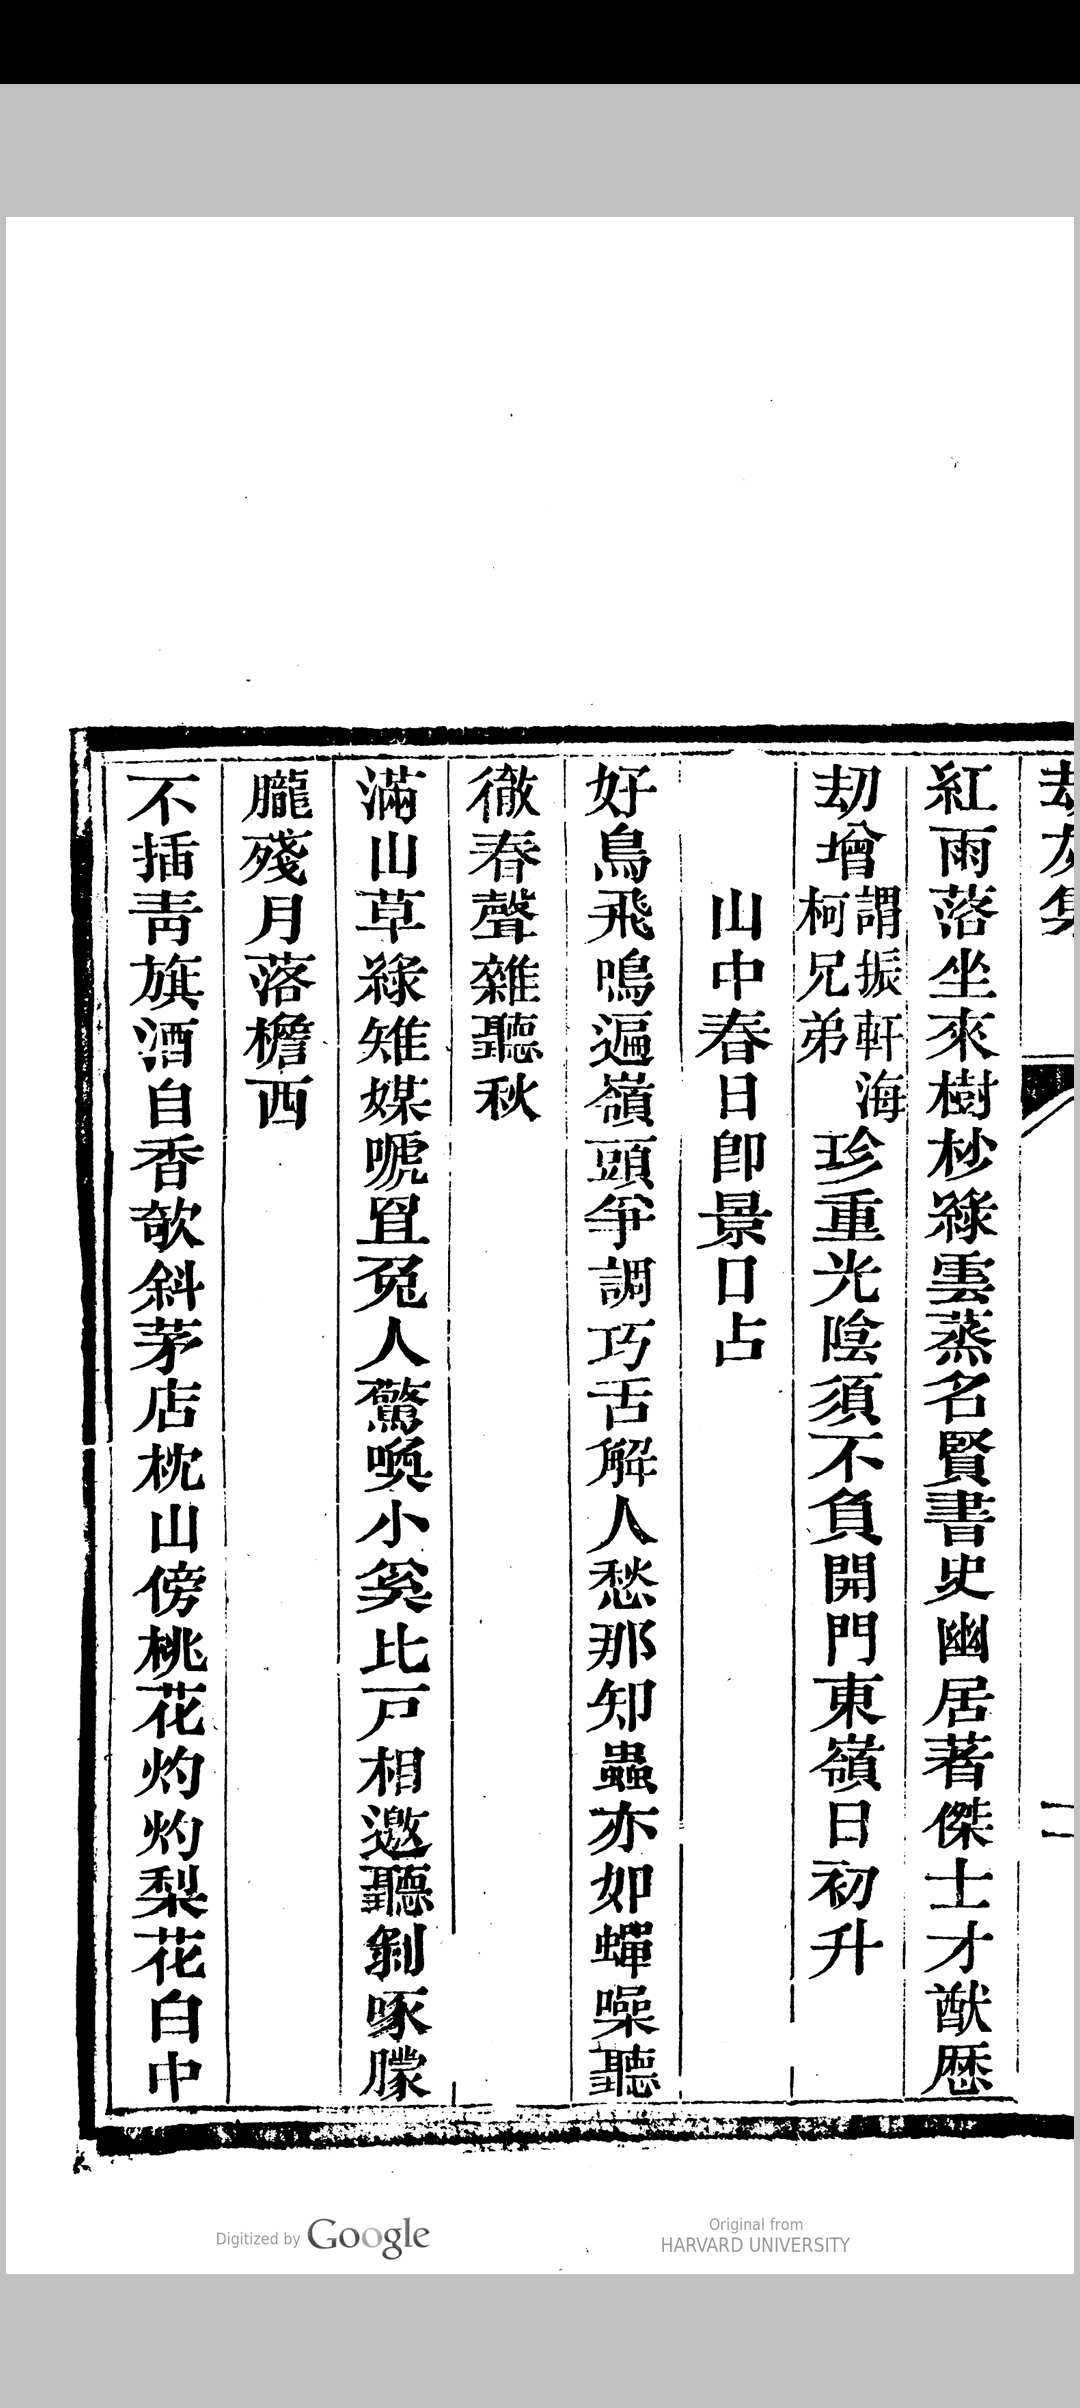 劫灰集
二
紅雨落坐來樹杪綠雲蒸名賢書史幽居著傑士才猷歷
劫增謂振軒海柯兄弟珍重光陰須不負開門東嶺日初升
山中春日卽景口占
好鳥飛鳴遍嶺頭爭調巧舌解人愁那知蟲亦如蟬噪聽
徹春聲雜聽秋
滿山草綠雉媒嗁罝兔人驚喚小奚比戸相邀聽剝啄朦
朧殘月落檐西
不插靑旗酒自香欹斜茅店枕山傍桃花灼灼梨花白中
Digitized by Google
Original from
HARVARD UNIVERSITY